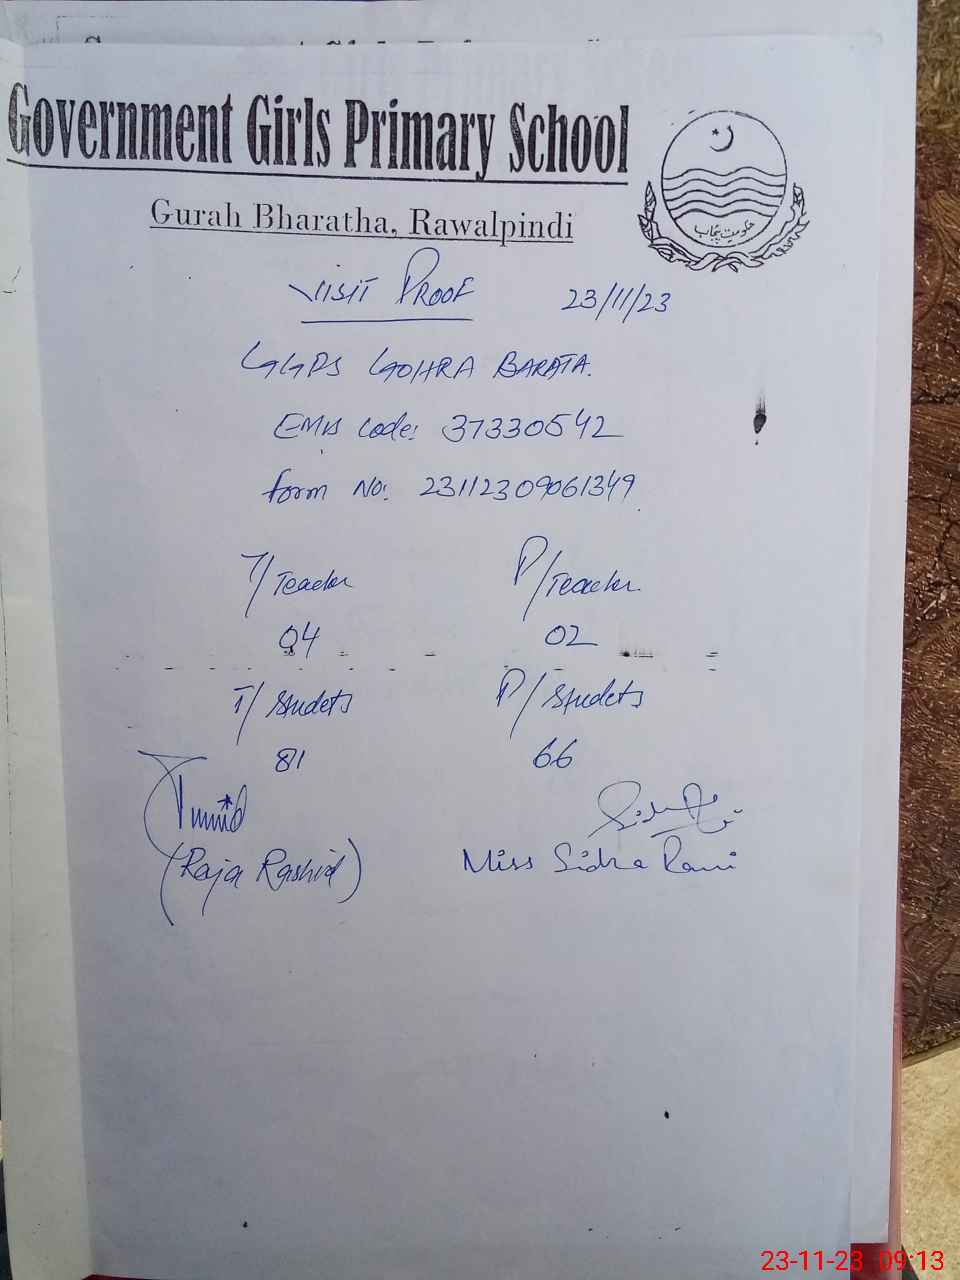 Government Girls Primary School
Gurah Bharatha, Rawalpindi
حکومت پنجاب
VISIT PROOF 23/11/23
GGPS GOHRA BARATA.
EMIS Code: 37330542
Form No: 23112309061349
T/Teacher P/Teacher.
04 02
T/Students P/Students
81 66
(Raja Rashid) Miss Sidra Rani
23-11-23 09:13